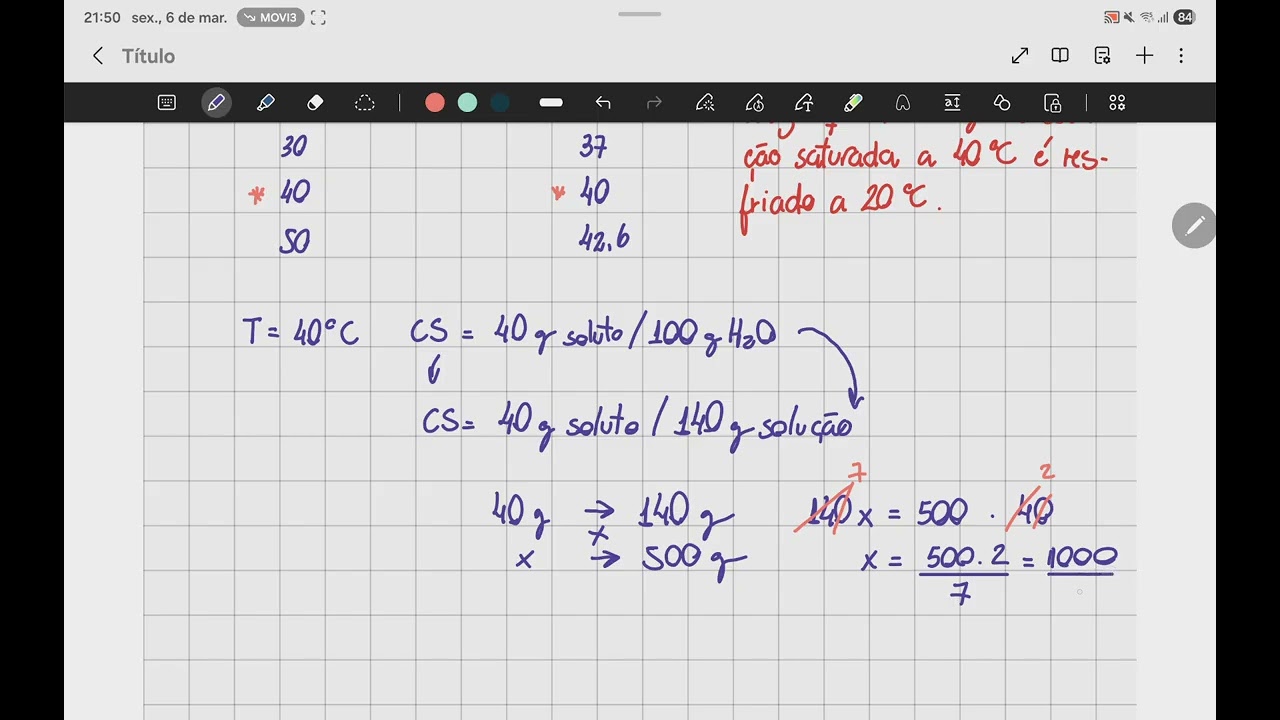 21:50 sex., 6 de mar. MOVI3 84
Título
30 37
ção saturada a 40°C é res-
* 40 * 40
friado a 20°C.
50 42,6
T = 40°C CS = 40 g soluto / 100 g H2O
CS = 40 g soluto / 140 g solução
7 2
40 g → 140 g 140 x = 500 . 40
x
x → 500 g x = 500 . 2 = 1000
7